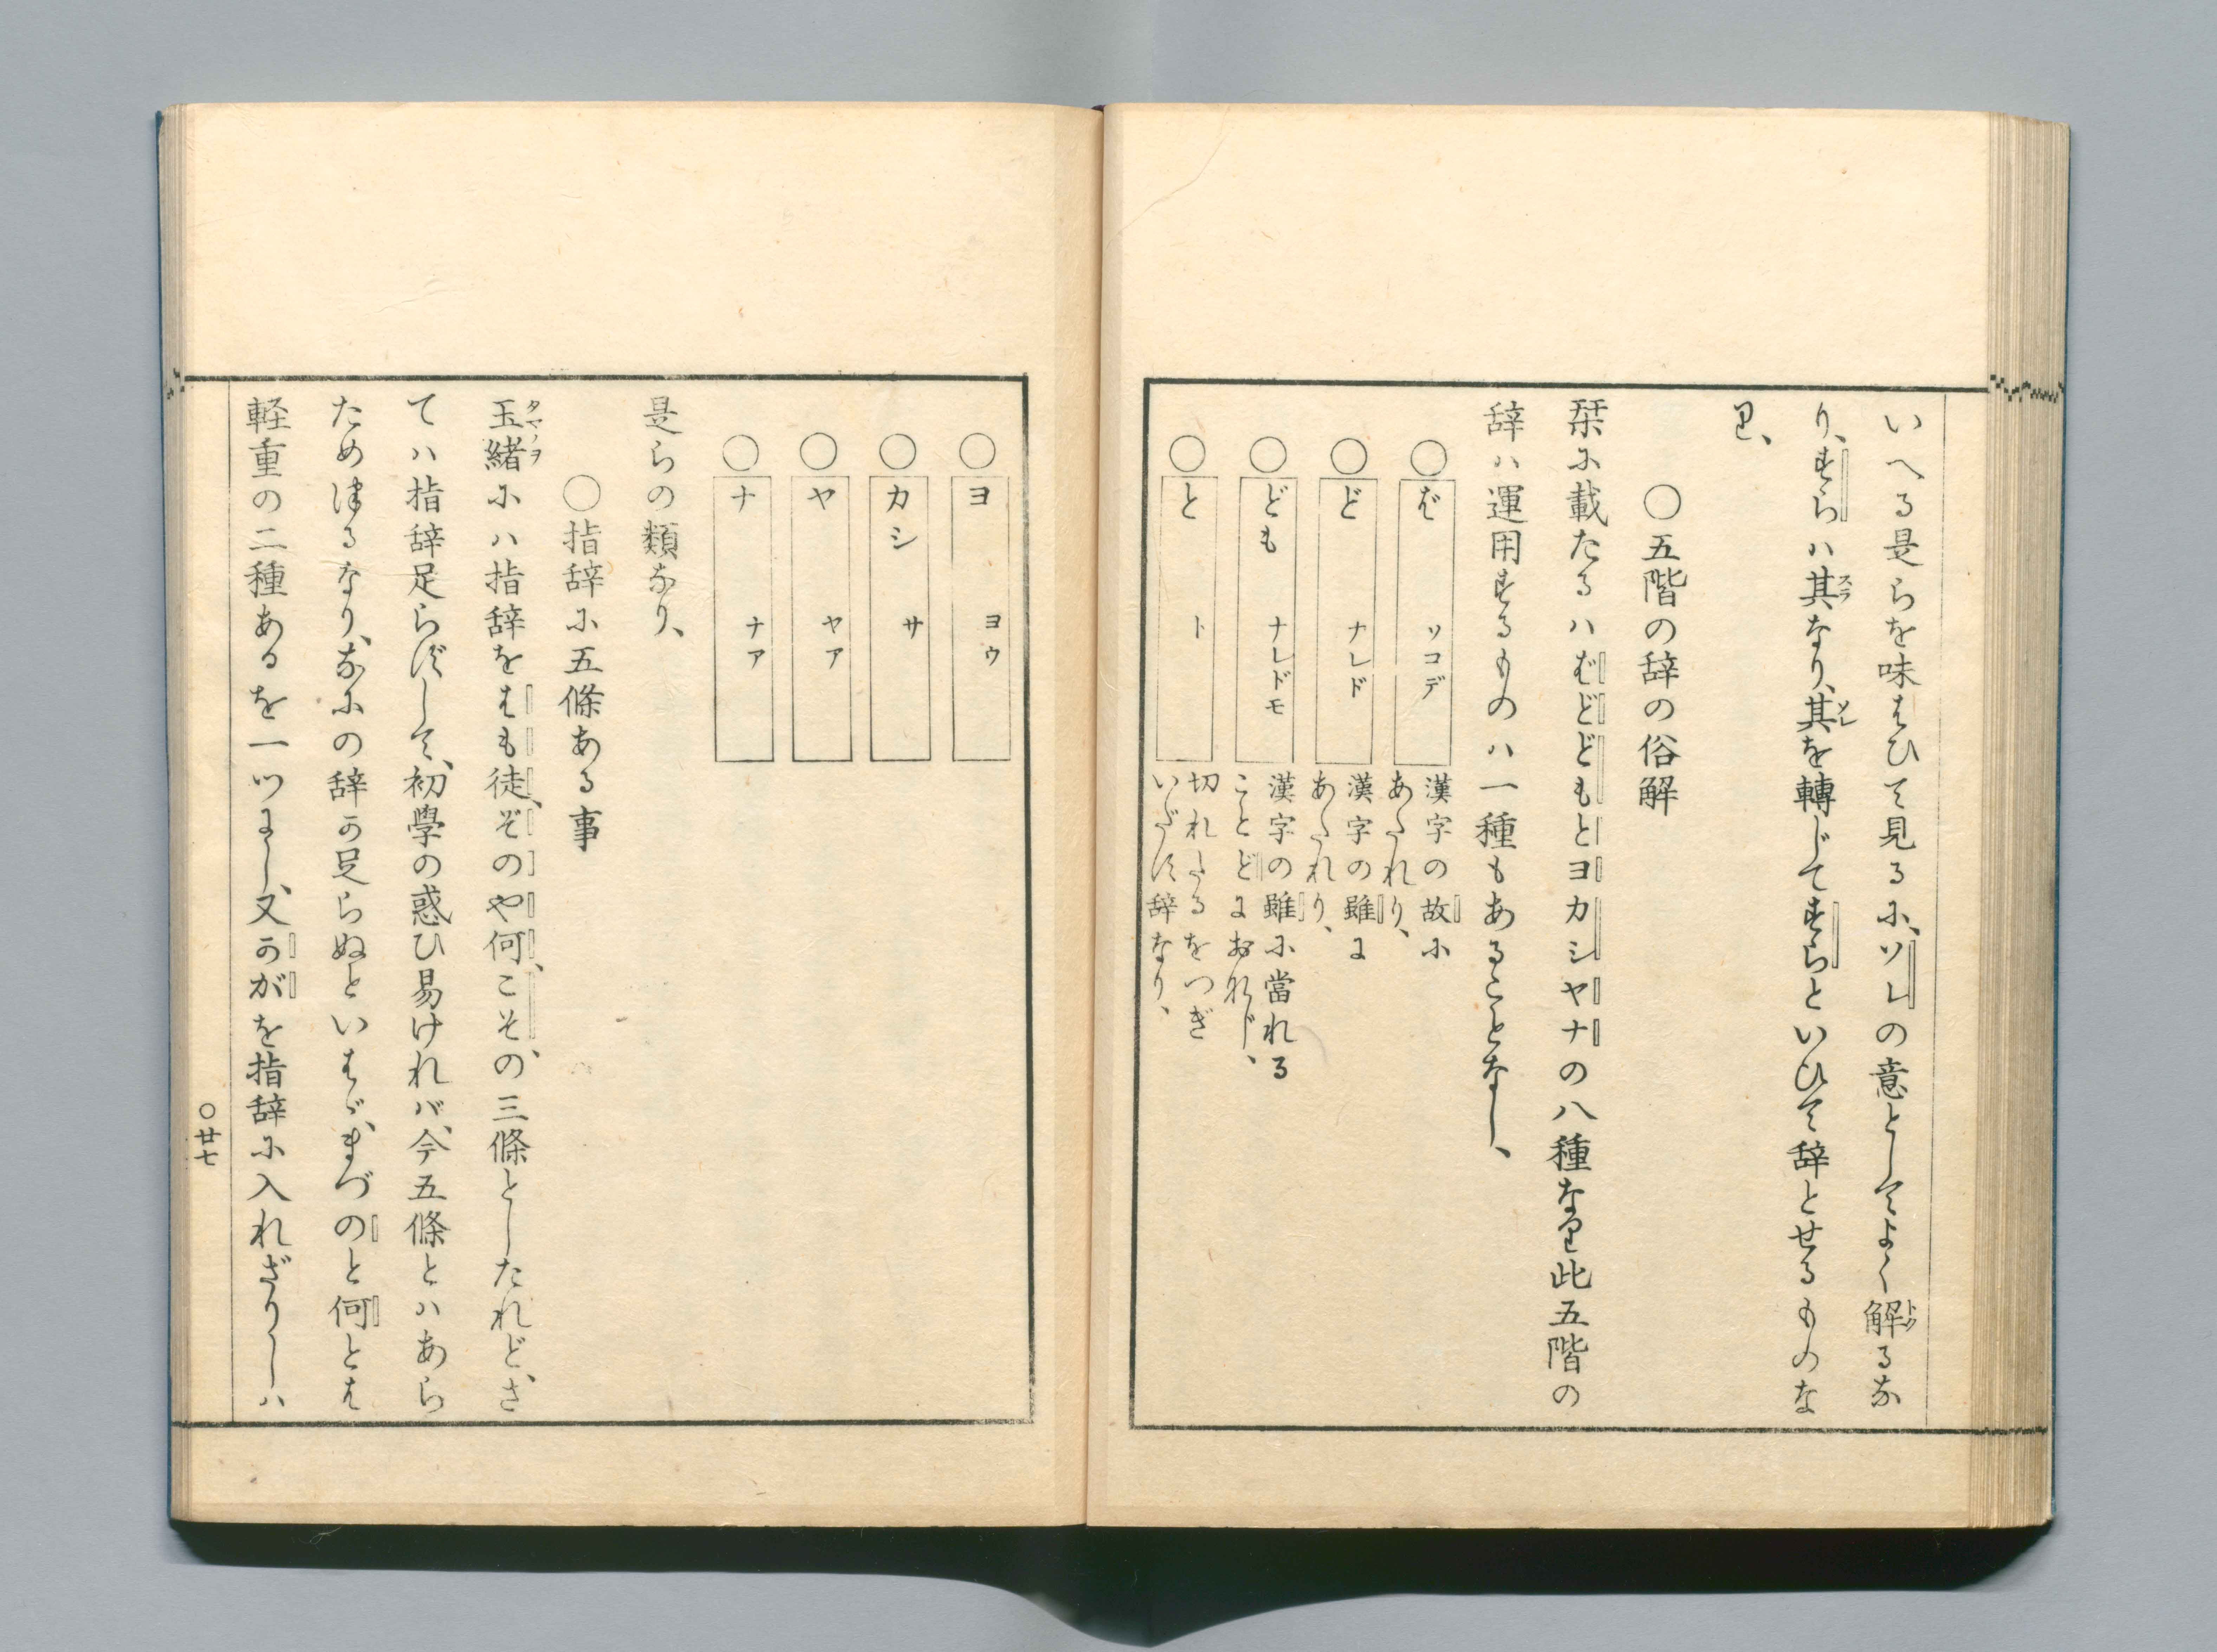 いへる是らを味はひて見るに、ソレの意としてよく解るな
り、すらハ其なり、其を轉じてすらといひて辞とせるものな
り、
○五階の辞の俗解
栞に載たるハばどどもとヨカシヤナの八種なり此五階の
辞ハ運用するものハ一種もあることなし、
○ば ソコデ 漢字の故に
あたれり、
○ど ナレド 漢字の雖に
あたれり、
○ども ナレドモ 漢字の雖に當れる
ことどにおなじ、
○と ト 切れたるをつぎ
いだす辞なり、
○ヨ ヨウ
○カシ サ
○ヤ ヤア
○ナ ナア
是らの類なり、
○指辞に五條ある事
玉緒にハ指辞をはも徒、ぞのや何、こその、三條としたれど、さ
てハ指辞足らずして、初學の惑ひ易けれバ、今五條とハあら
ためつるなり、なにの辞の足らぬといはゞ、まづのと何とは
軽重の二種あるを一ツにし、又かがを指辞に入れざりしハ
○廿七
タマノヲ
スラ
ソレ
トケ